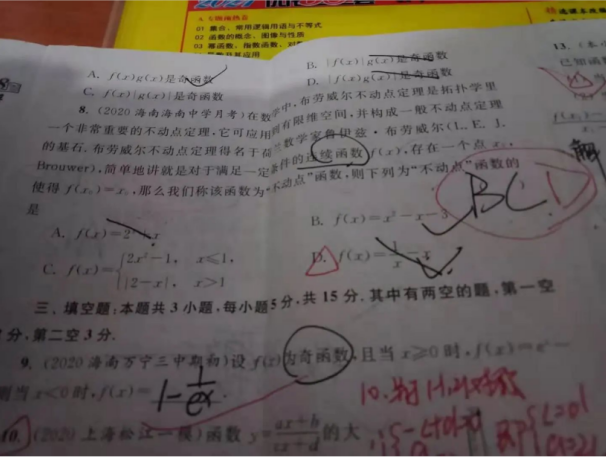 01 集合、常用逻辑用语与不等式
02 函数的概念、图像与性质
03 幂函数、指数函数、对
13.
A. f(x)g(x)是奇函数
B. |f(x)|g(x)是奇函数
C. f(x)|g(x)|是奇函数
D. |f(x)g(x)|是奇函数
8. (2020 海南海南中学月考) 在数学中, 布劳威尔不动点定理是拓扑学里
一个非常重要的不动点定理, 它可应用到有限维空间, 并构成一般不动点定理
的基石. 布劳威尔不动点定理得名于荷兰数学家鲁伊兹·布劳威尔(L. E. J.
Brouwer), 简单地讲就是对于满足一定条件的连续函数 f(x), 存在一个点 x₀,
使得 f(x₀)=x₀, 那么我们称该函数为“不动点”函数, 则下列为“不动点”函数的
是
BCD
A. f(x)=2ˣ+x
B. f(x)=x²-x-3
C. f(x)={2x²-1, x≤1,
|2-x|, x>1
D. f(x)=1/x-x
三、填空题: 本题共 3 小题, 每小题 5 分, 共 15 分. 其中有两空的题, 第一空
分, 第二空 3 分.
9. (2020 海南万宁三中期初) 设 f(x)为奇函数, 且当 x≥0 时, f(x)=
则当 x<0 时, f(x)=
10. (2020 上海松江一模) 函数 y=(ax+b)/(cx+d) 的大